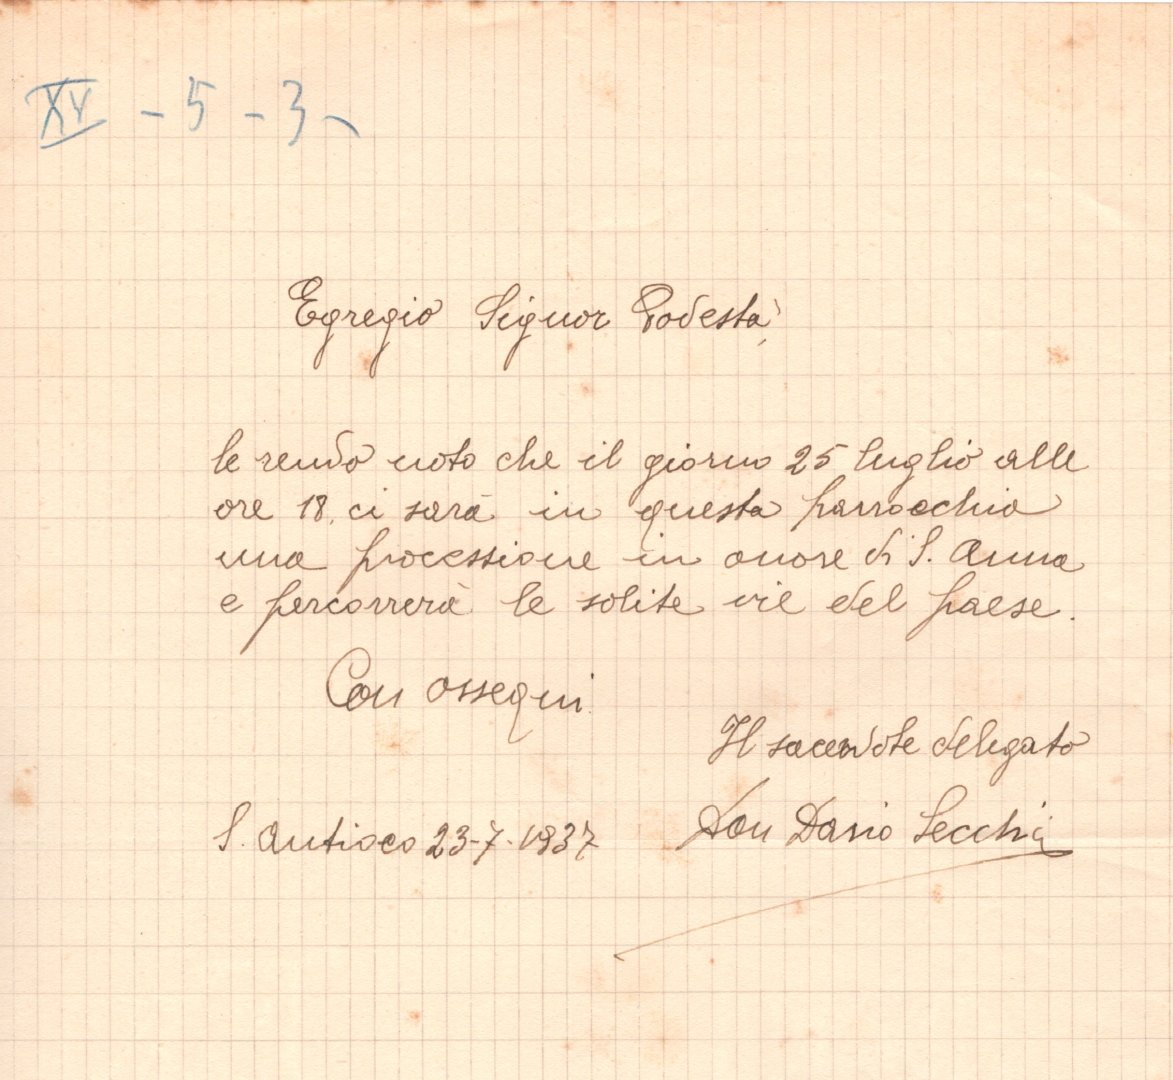 XV - 5 - 3 -
Egregio Signor Podestà,
le rendo noto che il giorno 25 luglio alle
ore 18, ci sarà in questa parrocchia
una processione in onore di S. Anna
e percorrerà le solite vie del paese.
Con ossequi
Il sacerdote delegato
S. Antioco 23-7-1937
Don Dario Secchi